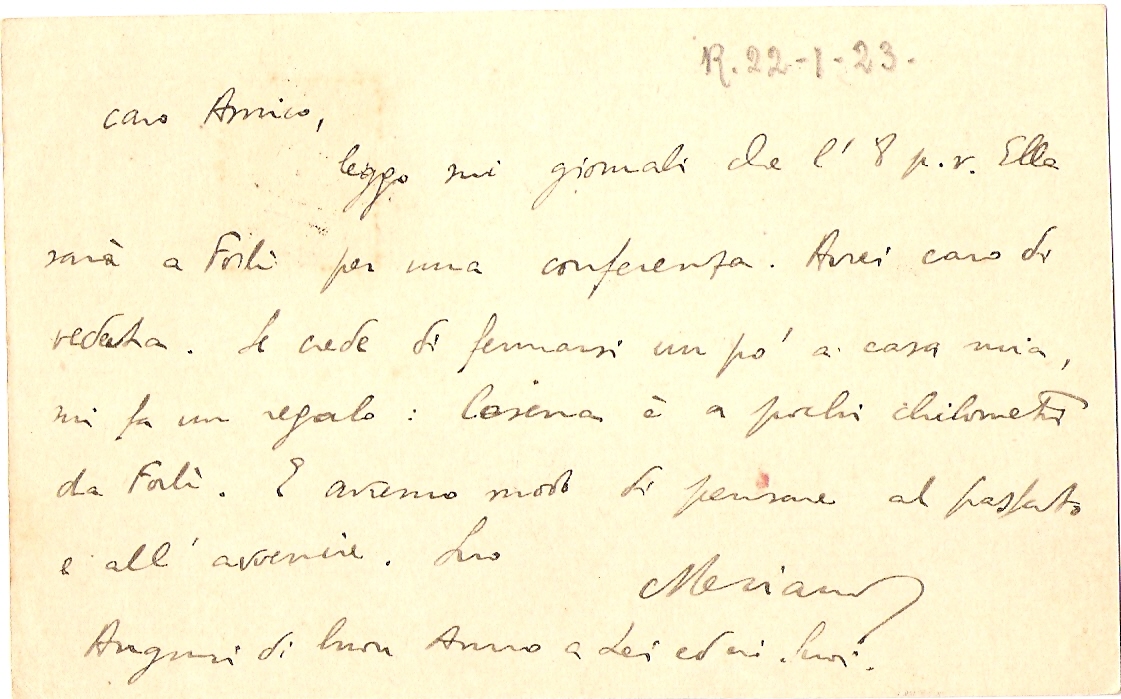 R. 22-1-23.
caro Amico,
leggo sui giornali che l'8 p.v. Ella
sarà a Forlì per una conferenza. Avrei caro di
vederla. Se crede di fermarsi un po' a casa mia,
mi fa un regalo: Cesena è a pochi chilometri
da Forlì. E avremo modo di pensare al passato
e all'avvenire. Suo
Meriano
Auguri di buon Anno a Lei ed ai Suoi.